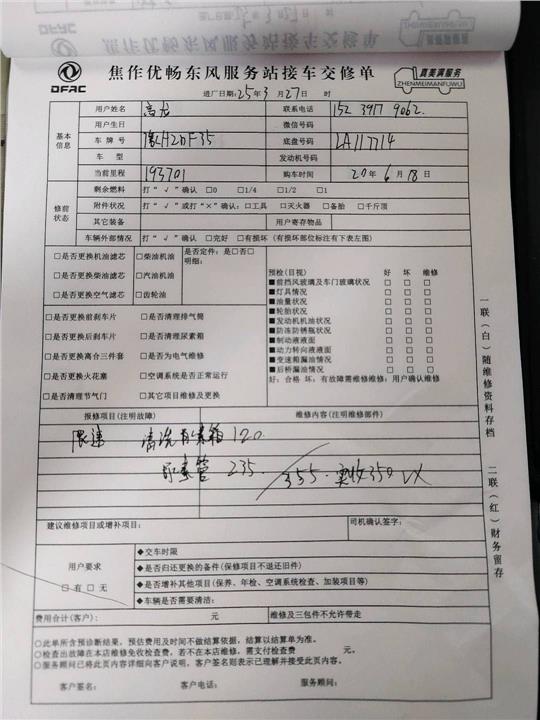 DFAC
焦作优畅东风服务站接车交修单
真美满服务
ZHENMEIMANFUWU
进厂日期:25年3月27日 时
基本信息
用户姓名 高龙 联系电话 152 3917 9062.
用户生日 微信号码
车牌号 豫H2DF35 底盘号码 LA117714
车 型 发动机号码
当前里程 193701 购车时间 20年6月18日
修前状态
剩余燃料 打"√"确认 □0 □1/4 □1/2 □1
附件状况 打"√"或打"×"确认:□工具 □灭火器 □备胎 □千斤顶
其它装备 用户寄存物品
车辆外部情况 打"√"确认 □完好 □有损坏(有损部位标注有下表左图)
□是否更换机油滤芯 □柴油机油 是否定件:是□否□
明细:
□是否更换柴油滤芯 □汽油机油
□是否更换空气滤芯 □齿轮油
□是否更换前刹车片 □是否清理排气筒
□是否更换后刹车片 □是否清理尿素箱
□是否更换离合三件套 □是否为电气维修
□是否更换火花塞 □空调系统是否正常运行
□是否清理节气门 □其它项目维修及更换
预检(目视) 好 坏 维修
■前挡风玻璃及车门玻璃状况 □ □ □
■灯具情况 □ □ □
■油量状况 □ □ □
■轮胎状况 □ □ □
■发动机机油状况 □ □ □
■防冻防锈瓶状况 □ □ □
■制动液液面 □ □ □
■动力转向液液面 □ □ □
■变速箱漏油情况 □ □ □
■后桥漏油情况 □ □ □
好:合格 坏:有故障需维修维修:用户确认维修
报修项目(注明故障) 维修内容(注明维修部件)
限速 清洗尿素箱 120
尿素管 235. 355. 实收350
建议维修项目或增补项目: 司机确认签字:
用户要求
□有 □无
◆交车时限
◆是否归还更换的备件(保修项目不退还旧件)
◆是否增补其他项目(保养、年检、空调系统检查、加装项目等)
◆车辆是否需要清洁:
费用合计(客户): 元 维修及三包件不允许带走
○此单所含预诊断结果,预估费用及时间不做结算依据,结算以结算单为准。
○检查出故障在本店维修免收检查费,若不在本店维修,需支付检查费 元。
○服务顾问已将此页内容详细向客户说明,客户签名则表示已理解并接受此页内容。
客户签名: 客户电话: 服务顾问:
一联(白)随维修资料存档
二联(红)财务留存